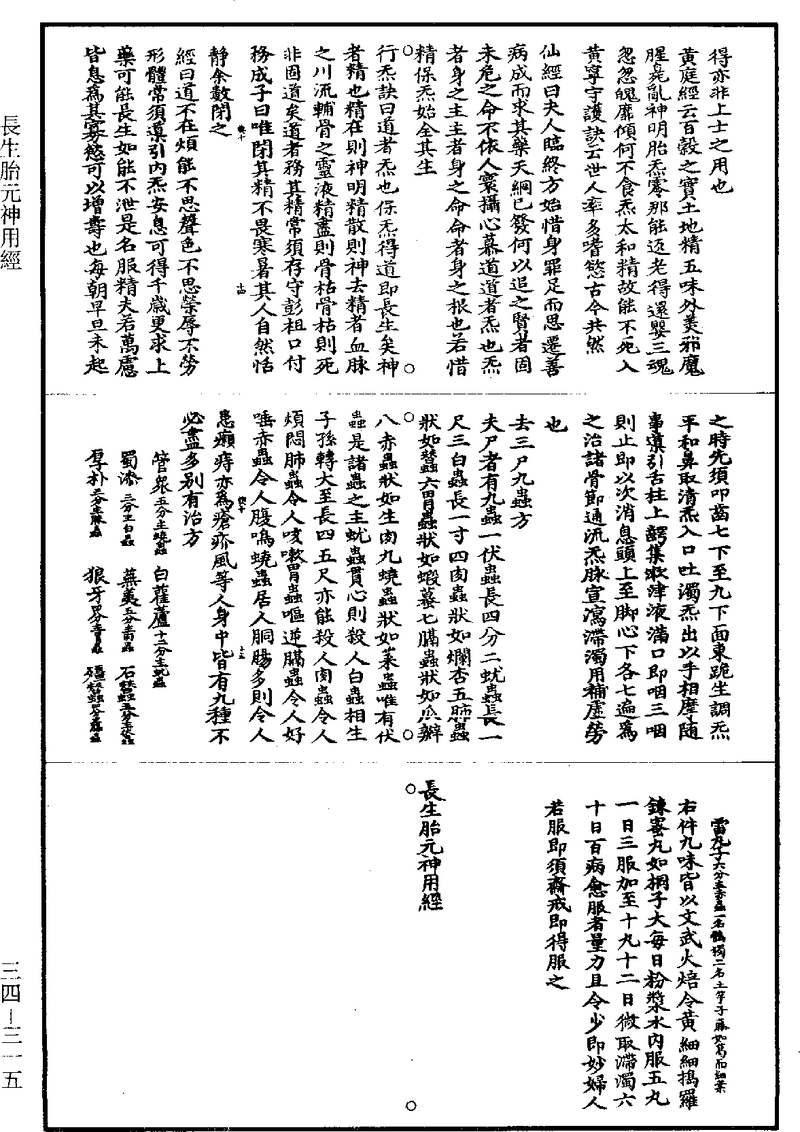 得亦非上士之用也
黃庭經云百穀之實土地精五味外美邪魔
腥臰亂神明胎炁零那能返老得還嬰三魂
忽忽魄靡傾何不食炁太和精故能不死入
黃寧守護訣云世人率多嗜慾古今共然
仙經曰夫人臨終方始惜身罪足而思遷善
病成而求其藥天網已發何以追之賢者固
未危之命不依人寰攝心慕道道者炁也炁
者身之主主者身之命命者身之根也若惜
精保炁始全其生
行炁訣曰道者炁也保炁得道即長生矣神
者精也精在則神明精散則神去精者血脉
之川流輔骨之靈液精盡則骨枯骨枯則死
非固道矣道者務其精常須存守彭祖口付
務成子曰唯閉其精不畏寒暑其人自然恬
靜余數閉之
經曰道不在煩能不思聲色不思榮辱不勞
形體常須導引內炁安息可得千歲更求上
藥可能長生如能不泄是名服精夫若萬慮
皆息為其寡慾可以增壽也每朝早旦未起
之時先須叩齒七下至九下面東跪坐調炁
平和鼻取清炁入口吐濁炁出以手相摩隨
事導引舌柱上齶集取津液滿口即咽三咽
則止即以次消息頭上至脚心下各七遍為
之治諸骨節通流炁脉宣瀉滯濁用補虛勞
也
去三尸九蟲方
夫尸者有九蟲一伏蟲長四分二蚘蟲長一
尺三白蟲長一寸四肉蟲狀如爛杏五肺蟲
狀如蠶六胃蟲狀如蝦蟇七膈蟲狀如瓜瓣
八赤蟲狀如生肉九蟯蟲狀如菜蟲唯有伏
蟲是諸蟲之主蚘蟲貫心則殺人白蟲相生
子孫轉大至長四五尺亦能殺人肉蟲令人
煩悶肺蟲令人咳嗽胃蟲嘔逆膈蟲令人好
唾赤蟲令人腹鳴蟯蟲居人胴腸多則令人
患癩痔亦為瘡疥風等人身中皆有九種不
必盡多別有治方
管衆五分主蟯蟲 白雚蘆十二分主蚘蟲
蜀漆三分主白蟲 蕪荑五分主肉蟲 石蠶五分主
厚朴 狼牙 殭蠶
雷丸六分主赤蟲一名 二名土竿子藤如葛而細葉
右件九味皆以文武火焙令黃細細擣羅
鍊蜜丸如桐子大每日粉漿水內服五丸
一日三服加至十九十二日微取滯濁六
十日百病愈服者量力且令少即妙婦人
若服即須齋戒即得服之
長生胎元神用經
長生胎元神用經
三四—三一五